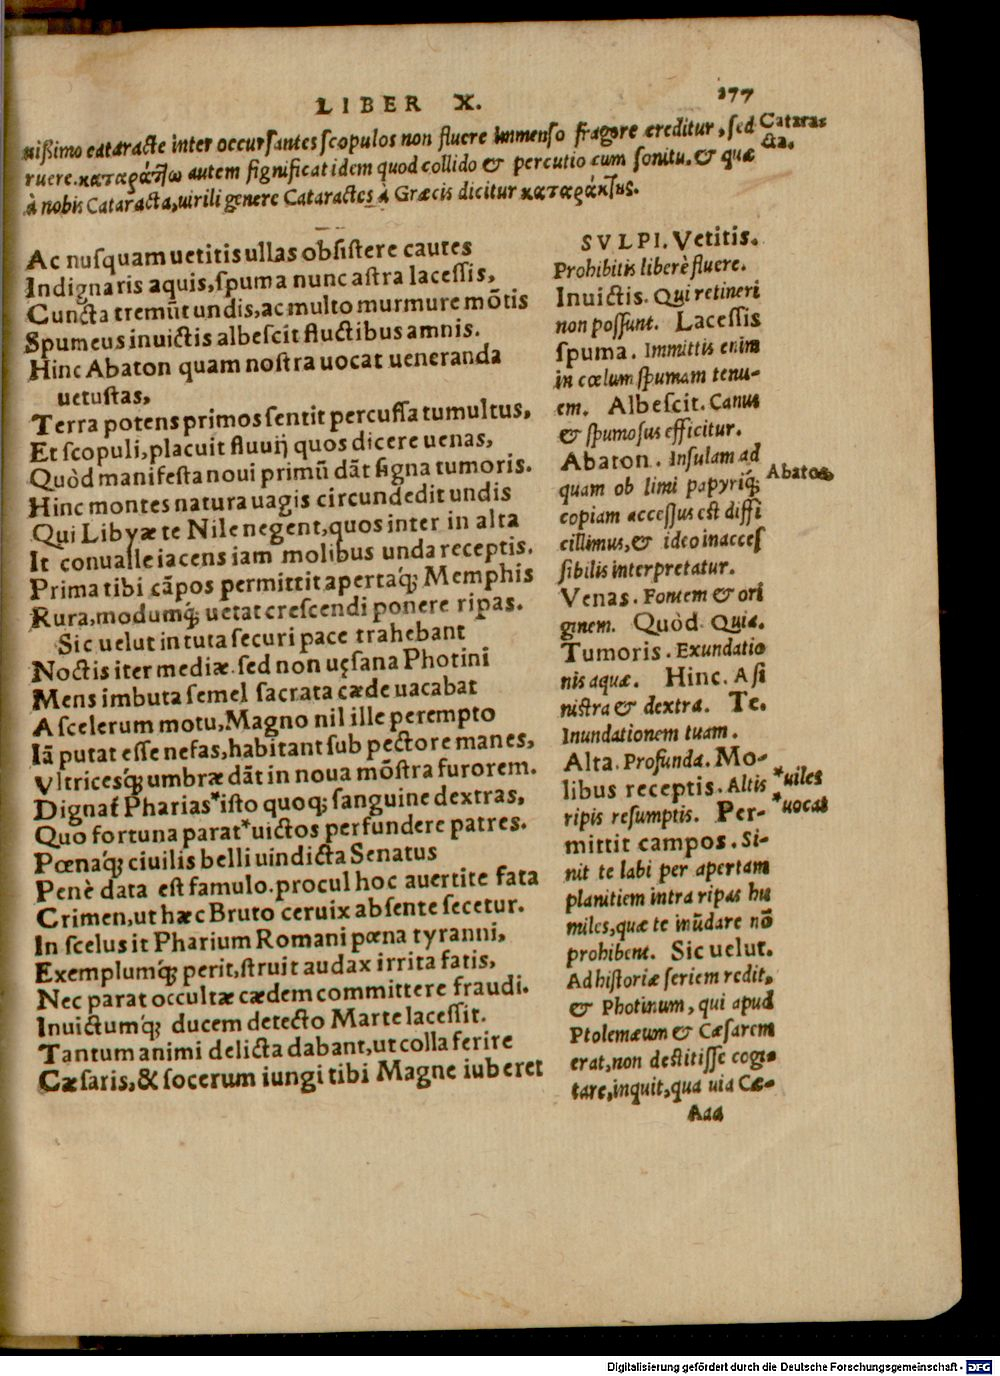 LIBER X. 177
nißimo cataracte inter occursantes scopulos non fluere immenso fragore creditur, sed
ruere. καταράττω autem significat idem quod collido & percutio cum sonitu. & quæ
à nobis Cataracta, uirili genere Cataractes à Græcis dicitur καταράκτης.
Cataras
cta.
Ac nusquam uetitis ullas obsistere cautes
Indignaris aquis, spuma nunc astra lacessis,
Cuncta tremũt undis, ac multo murmure mõtis
Spumeus inuictis albescit fluctibus amnis.
Hinc Abaton quam nostra uocat ueneranda
uetustas,
Terra potens primos sentit percussa tumultus,
Et scopuli, placuit fluuij quos dicere uenas,
Quòd manifesta noui primũ dãt signa tumoris.
Hinc montes natura uagis circundedit undis
Qui Libyæ te Nile negent, quos inter in alta
It conualle iacens iam molibus unda receptis.
Prima tibi cãpos permittit apertaq́; Memphis
Rura, modumq́; uetat crescendi ponere ripas.
Sic uelut in tuta securi pace trahebant
Noctis iter mediæ. sed non uęsana Photini
Mens imbuta semel sacrata cæde uacabat
A scelerum motu, Magno nil ille perempto
Iã putat esse nefas, habitant sub pectore manes,
Vltricesq́; umbræ dãt in noua mõstra furorem.
Dignat́ Pharias*isto quoq; sanguine dextras,
Quo fortuna parat*uictos perfundere patres.
Pœnaq́; ciuilis belli uindicta Senatus
Penè data est famulo. procul hoc auertite fata
Crimen, ut hæc Bruto ceruix absente secetur.
In scelus it Pharium Romani pœna tyranni,
Exemplumq́; perit, struit audax irrita fatis,
Nec parat occultæ cædem committere fraudi.
Inuictumq́; ducem detecto Marte lacessit.
Tantum animi delicta dabant, ut colla ferire
Cæsaris, & socerum iungi tibi Magne iuberet
SVLPI. Vetitis.
Prohibitis liberè fluere.
Inuictis. Qui retineri
non possunt. Lacessis
spuma. Immittis enim
in cœlum spumam tenu-
em. Albescit. Canus
& spumosus efficitur.
Abaton. Insulam ad
quam ob limi papyriq́;
copiam accessus est diffi
cillimus, & ideo inacces
sibilis interpretatur.
Venas. Fontem & ori
ginem. Quòd. Quia.
Tumoris. Exundatio
nis aquæ. Hinc. A si
nistra & dextra. Te.
Inundationem tuam.
Alta. Profunda. Mo-
libus receptis. Altis
ripis resumptis. Per-
mittit campos. Si-
nit te labi per apertam
planitiem intra ripas hu
miles, quæ te inũdare nõ
prohibent. Sic uelut.
Ad historiæ seriem redit,
& Photinum, qui apud
Ptolemæum & Cæsarem
erat, non destitisse cogi-
tare, inquit, qua uia Cæ-
Aaa
Abaton
*uiles
*uocat
Digitalisierung gefördert durch die Deutsche Forschungsgemeinschaft - DFG